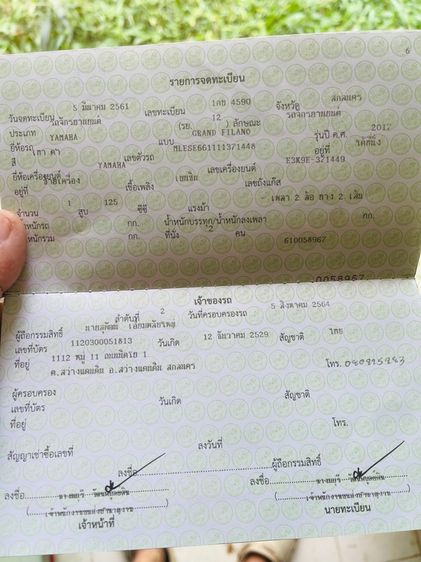 6
รายการจดทะเบียน
วันจดทะเบียน 5 มีนาคม 2561 เลขทะเบียน 1กข 4590 จังหวัด สกลนคร
ประเภท รถจักรยานยนต์ (รย. 12 ) ลักษณะ รถจักรยานยนต์
ยี่ห้อรถ YAMAHA แบบ GRAND FILANO รุ่นปี ค.ศ. 2017
สี เทา ดำ เลขตัวรถ MLESE661111371448 อยู่ที่
ยี่ห้อเครื่องยนต์ YAMAHA เลขเครื่องยนต์ E3K9E-371449
อยู่ที่ เชื้อเพลิง เบนซิน เลขถังแก๊ส
จำนวน 1 สูบ 125 ซีซี แรงม้า - เพลา 2 ล้อ ยาง 2 เส้น
น้ำหนักรถ กก. น้ำหนักบรรทุก/น้ำหนักลงเพลา กก.
น้ำหนักรวม กก. ที่นั่ง 2 คน 610058967
0058967
เจ้าของรถ
ลำดับที่ 2 วันที่ครอบครองรถ 5 สิงหาคม 2564
ผู้ถือกรรมสิทธิ์
เลขที่บัตร 1120300051813 วันเกิด 12 ธันวาคม 2529 สัญชาติ ไทย
ที่อยู่ 1112 หมู่ 11
ต.สว่างแดนดิน อ.สว่างแดนดิน สกลนคร โทร.
ผู้ครอบครอง
เลขที่บัตร วันเกิด สัญชาติ
ที่อยู่ โทร.
สัญญาเช่าซื้อเลขที่ ลงวันที่
ลงชื่อ ผู้ถือกรรมสิทธิ์
ลงชื่อ ลงชื่อ
เจ้าหน้าที่ นายทะเบียน